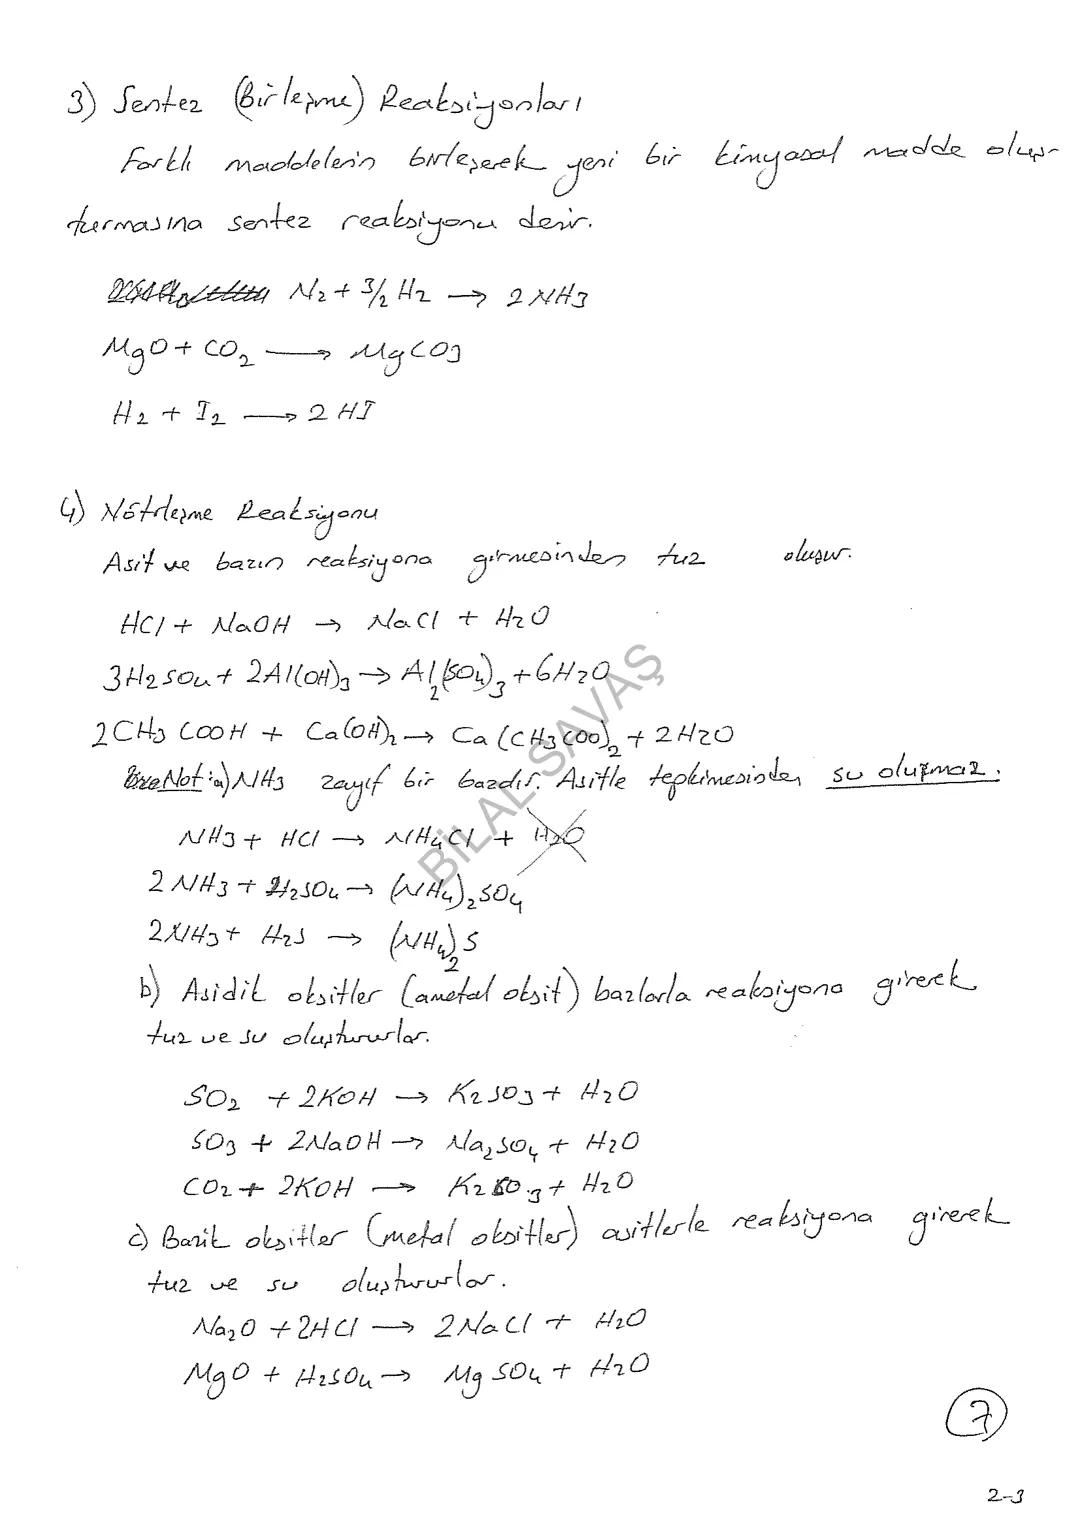 3) Sentez (Birleşme) Reaksiyonları
Farklı maddelerin birleşerek yeni bir kimyasal madde oluş-
turmasına sentez reaksiyonu denir.
N2 + 3/2 H2 → 2NH3
MgO + CO2 → MgCO3
H2 + I2 → 2HI
4) Nötrleşme Reaksiyonu
Asit ve bazın reaksiyona girmesinden tuz oluşur.
HCl + NaOH → NaCl + H2O
3H2SO4 + 2Al(OH)3 → Al2(SO4)3 + 6H2O
2CH3COOH + Ca(OH)2 → Ca(CH3COO)2 + 2H2O
Not: a) NH3 zayıf bir bazdır. Asitle tepkimesinden su oluşmaz.
NH3 + HCl → NH4Cl + H2O
2NH3 + H2SO4 → (NH4)2SO4
2NH3 + H2S → (NH4)2S
b) Asidik oksitler (ametal oksit) bazlarla reaksiyona girerek
tuz ve su oluştururlar.
SO2 + 2KOH → K2SO3 + H2O
SO3 + 2NaOH → Na2SO4 + H2O
CO2 + 2KOH → K2CO3 + H2O
c) Bazik oksitler (metal oksitler) asitlerle reaksiyona girerek
tuz ve su oluştururlar.
Na2O + 2HCl → 2NaCl + H2O
MgO + H2SO4 → MgSO4 + H2O
7
2-3
BİLAL SAVAŞ